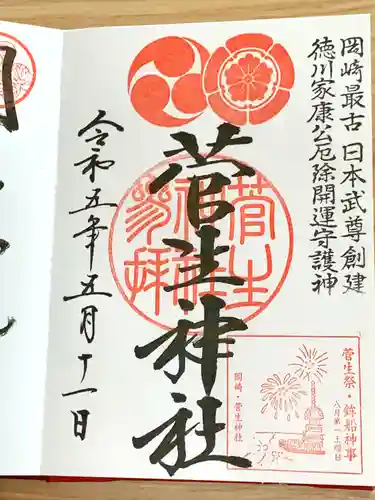 岡崎最古 日本武尊創建
徳川家康公厄除開運守護神
菅生神社
菅生神社参拝
令和五年五月十一日
菅生祭・鉾船神事
八月第一土曜日
岡崎・菅生神社